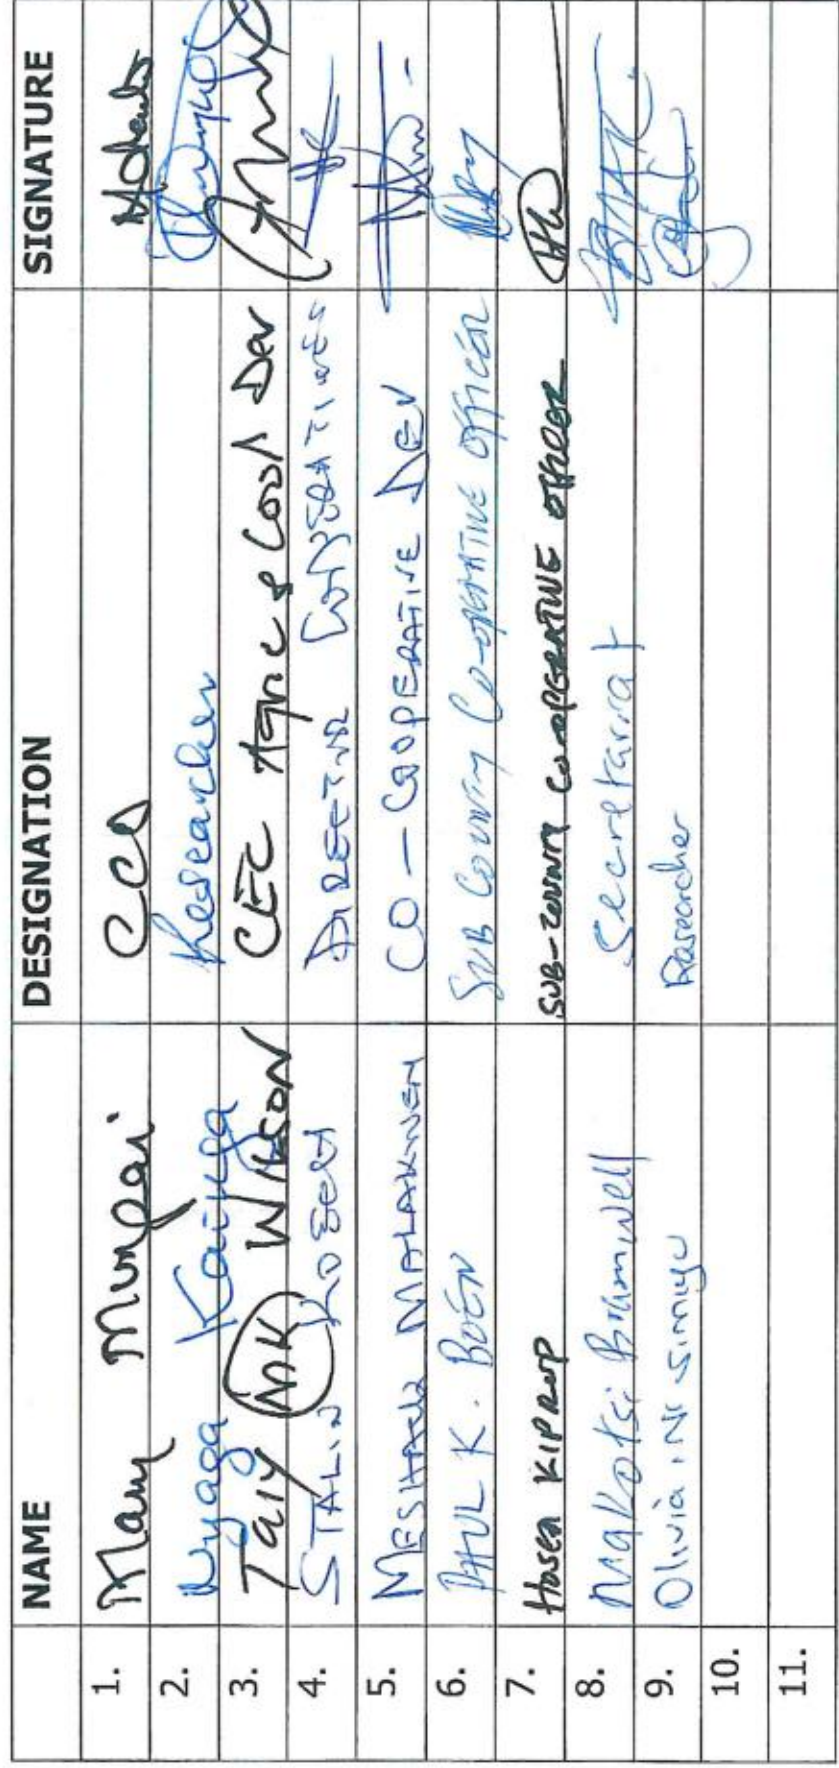 NAME DESIGNATION SIGNATURE
1. Mary Mungai CCD
2. Nyaga Kainga Researcher
3. Taiy MK Wilson CEC Agric & Coop Dev
4. STALIN KOSGEI DIRECTOR COOPERATIVES
5. MESHACK MALAKWEN CO - COOPERATIVE DEV
6. PAUL K. BOEN SUB COUNTY CO-OPERATIVE OFFICER
7. Hosea KIPROP SUB-COUNTY CO-OPERATIVE OFFICER
8. Makotsi Bramwell Secretariat
9. Olivia .N. Simiyu Researcher
10.
11.